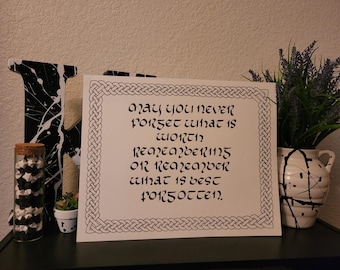 May you never
forget what is
worth
remembering
or remember
what is best
forgotten.